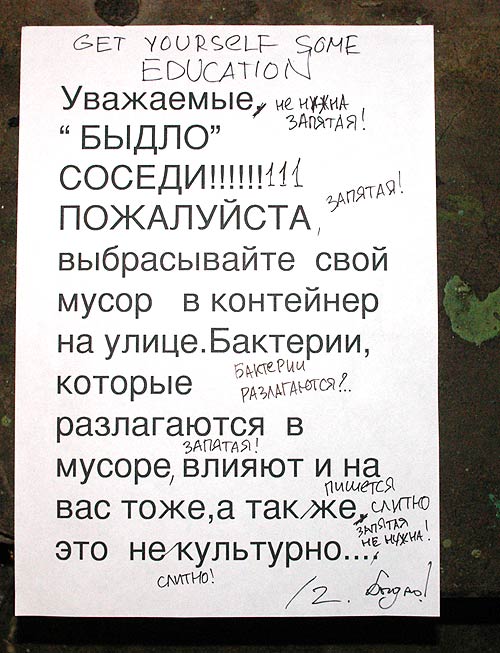 GET YOURSELF SOME
EDUCATION
Уважаемые, не нужна
запятая!
“ БЫДЛО”
СОСЕДИ!!!!!!111
запятая!
ПОЖАЛУЙСТА,
выбрасывайте свой
мусор в контейнер
на улице.Бактерии,
бактерии
которые разлагаются?..
разлагаются в
запятая!
мусоре, влияют и на
пишется
вас тоже,а так же, слитно
запятая
не нужна!
это не культурно....
слитно!
/2. быдло!